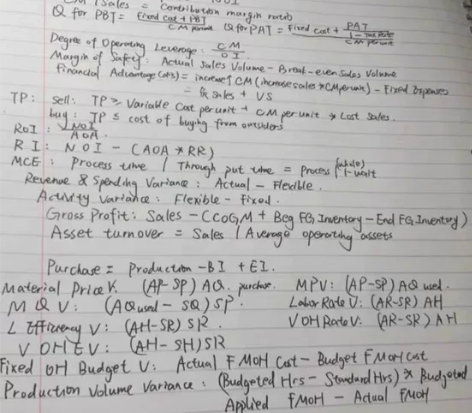 CM / Sales = Contribution margin ratio
Q for PBT = Fixed Cost + PBT / CM per unit Q for PAT = Fixed cost + PAT / 1 - Tax Rate / CM per unit
Degree of Operating Leverage: CM / OI
Margin of Safety: Actual Sales Volume - Break-even Sales Volume
Financial Advantage (dis) = increase↑ CM (increase sales * CM per unit) - Fixed Expenses
= & sales + VS
TP: Sell: TP ≥ Variable Cost per unit + CM per unit * Lost Sales.
buy: TP ≤ cost of buying from outsiders
ROI: NOI / AOA
RI: NOI - (AOA * RR)
MCE: Process time / Through put time = Process / 1-wait
Revenue & Spending Variance: Actual - Flexible.
Activity Variance: Flexible - Fixed.
Gross Profit: Sales - (COGM + Beg FG Inventory - End FG Inventory)
Asset turnover = Sales / Average operating assets
Purchase = Production - BI + EI.
Material Price V: (AP-SP) AQ purchase. MPV: (AP-SP) AQ used.
MQV: (AQ used - SQ) SP. Labor Rate V: (AR-SR) AH
L Efficiency V: (AH-SH) SR. VOH Rate V: (AR-SR) AH
VOHEV: (AH-SH) SR
Fixed OH Budget V: Actual FMOH Cost - Budget FMOH Cost
Production Volume Variance: (Budgeted Hrs - Standard Hrs) * Budgeted
Applied FMOH - Actual FMOH